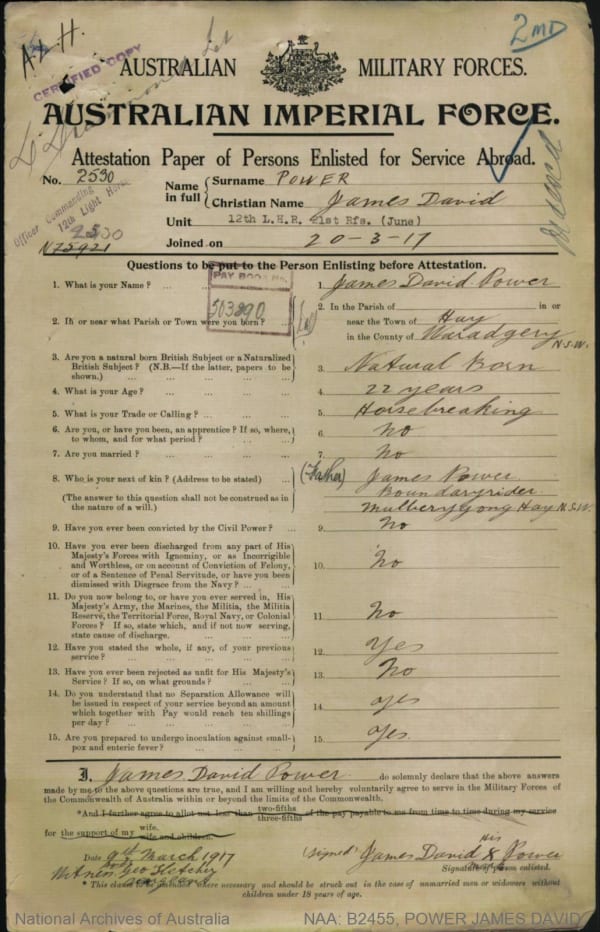 A L H.
CERTIFIED COPY
2ND
AUSTRALIAN MILITARY FORCES.
AUSTRALIAN IMPERIAL FORCE.
Attestation Paper of Persons Enlisted for Service Abroad.
No. 2530
Name in full { Surname POWER
Christian Name James David
Officer Commanding
12th Light Horse
2530
N75921
Unit 12th L.H.R. 21st Rfs. (June)
Joined on 20-3-17
Questions to be put to the Person Enlisting before Attestation.
PAY BOOK No.
503890
1. What is your Name? ... ... 1. James David Power
2. In or near what Parish or Town were you born? ... 2. In the Parish of in or
near the Town of Hay
in the County of Waradgery N.S.W.
3. Are you a natural born British Subject or a Naturalized
British Subject? (N.B.—If the latter, papers to be
shown.) ... 3. Natural Born
4. What is your Age? ... 4. 22 years
5. What is your Trade or Calling? ... 5. Horsebreaking
6. Are you, or have you been, an apprentice? If so, where,
to whom, and for what period? ... 6. No
7. Are you married? ... 7. No
8. Who is your next of kin? (Address to be stated) ... (Father) James Power
Boundaryrider
(The answer to this question shall not be construed as in
the nature of a will.) Mulberrygong Hay N.S.W.
9. Have you ever been convicted by the Civil Power? ... 9. No
10. Have you ever been discharged from any part of His
Majesty's Forces with Ignominy, or as Incorrigible
and Worthless, or on account of Conviction of Felony,
or of a Sentence of Penal Servitude, or have you been
dismissed with Disgrace from the Navy? ... 10. No
11. Do you now belong to, or have you ever served in, His
Majesty's Army, the Marines, the Militia, the Militia
Reserve, the Territorial Force, Royal Navy, or Colonial
Forces? If so, state which, and if not now serving,
state cause of discharge. ... 11. No
12. Have you stated the whole, if any, of your previous
service? ... 12. Yes
13. Have you ever been rejected as unfit for His Majesty's
Service? If so, on what grounds? ... 13. No
14. Do you understand that no Separation Allowance will
be issued in respect of your service beyond an amount
which together with Pay would reach ten shillings
per day? ... 14. yes
15. Are you prepared to undergo inoculation against small-
pox and enteric fever? ... 15. yes.
I, James David Power do solemnly declare that the above answers
made by me to the above questions are true, and I am willing and hereby voluntarily agree to serve in the Military Forces of
the Commonwealth of Australia within or beyond the limits of the Commonwealth.
*And I further agree to allot not less than two-fifths three-fifths of the pay payable to me from time to time during my service
for the support of my wife. wife and children.
Date 9th March 1917 (signed) James David his X mark Power
Signature of person enlisted.
Witness Geo Fletcher
* This clause should be struck out in the case of unmarried men or widowers without
children under 18 years of age.
National Archives of Australia NAA: B2455, POWER JAMES DAVID